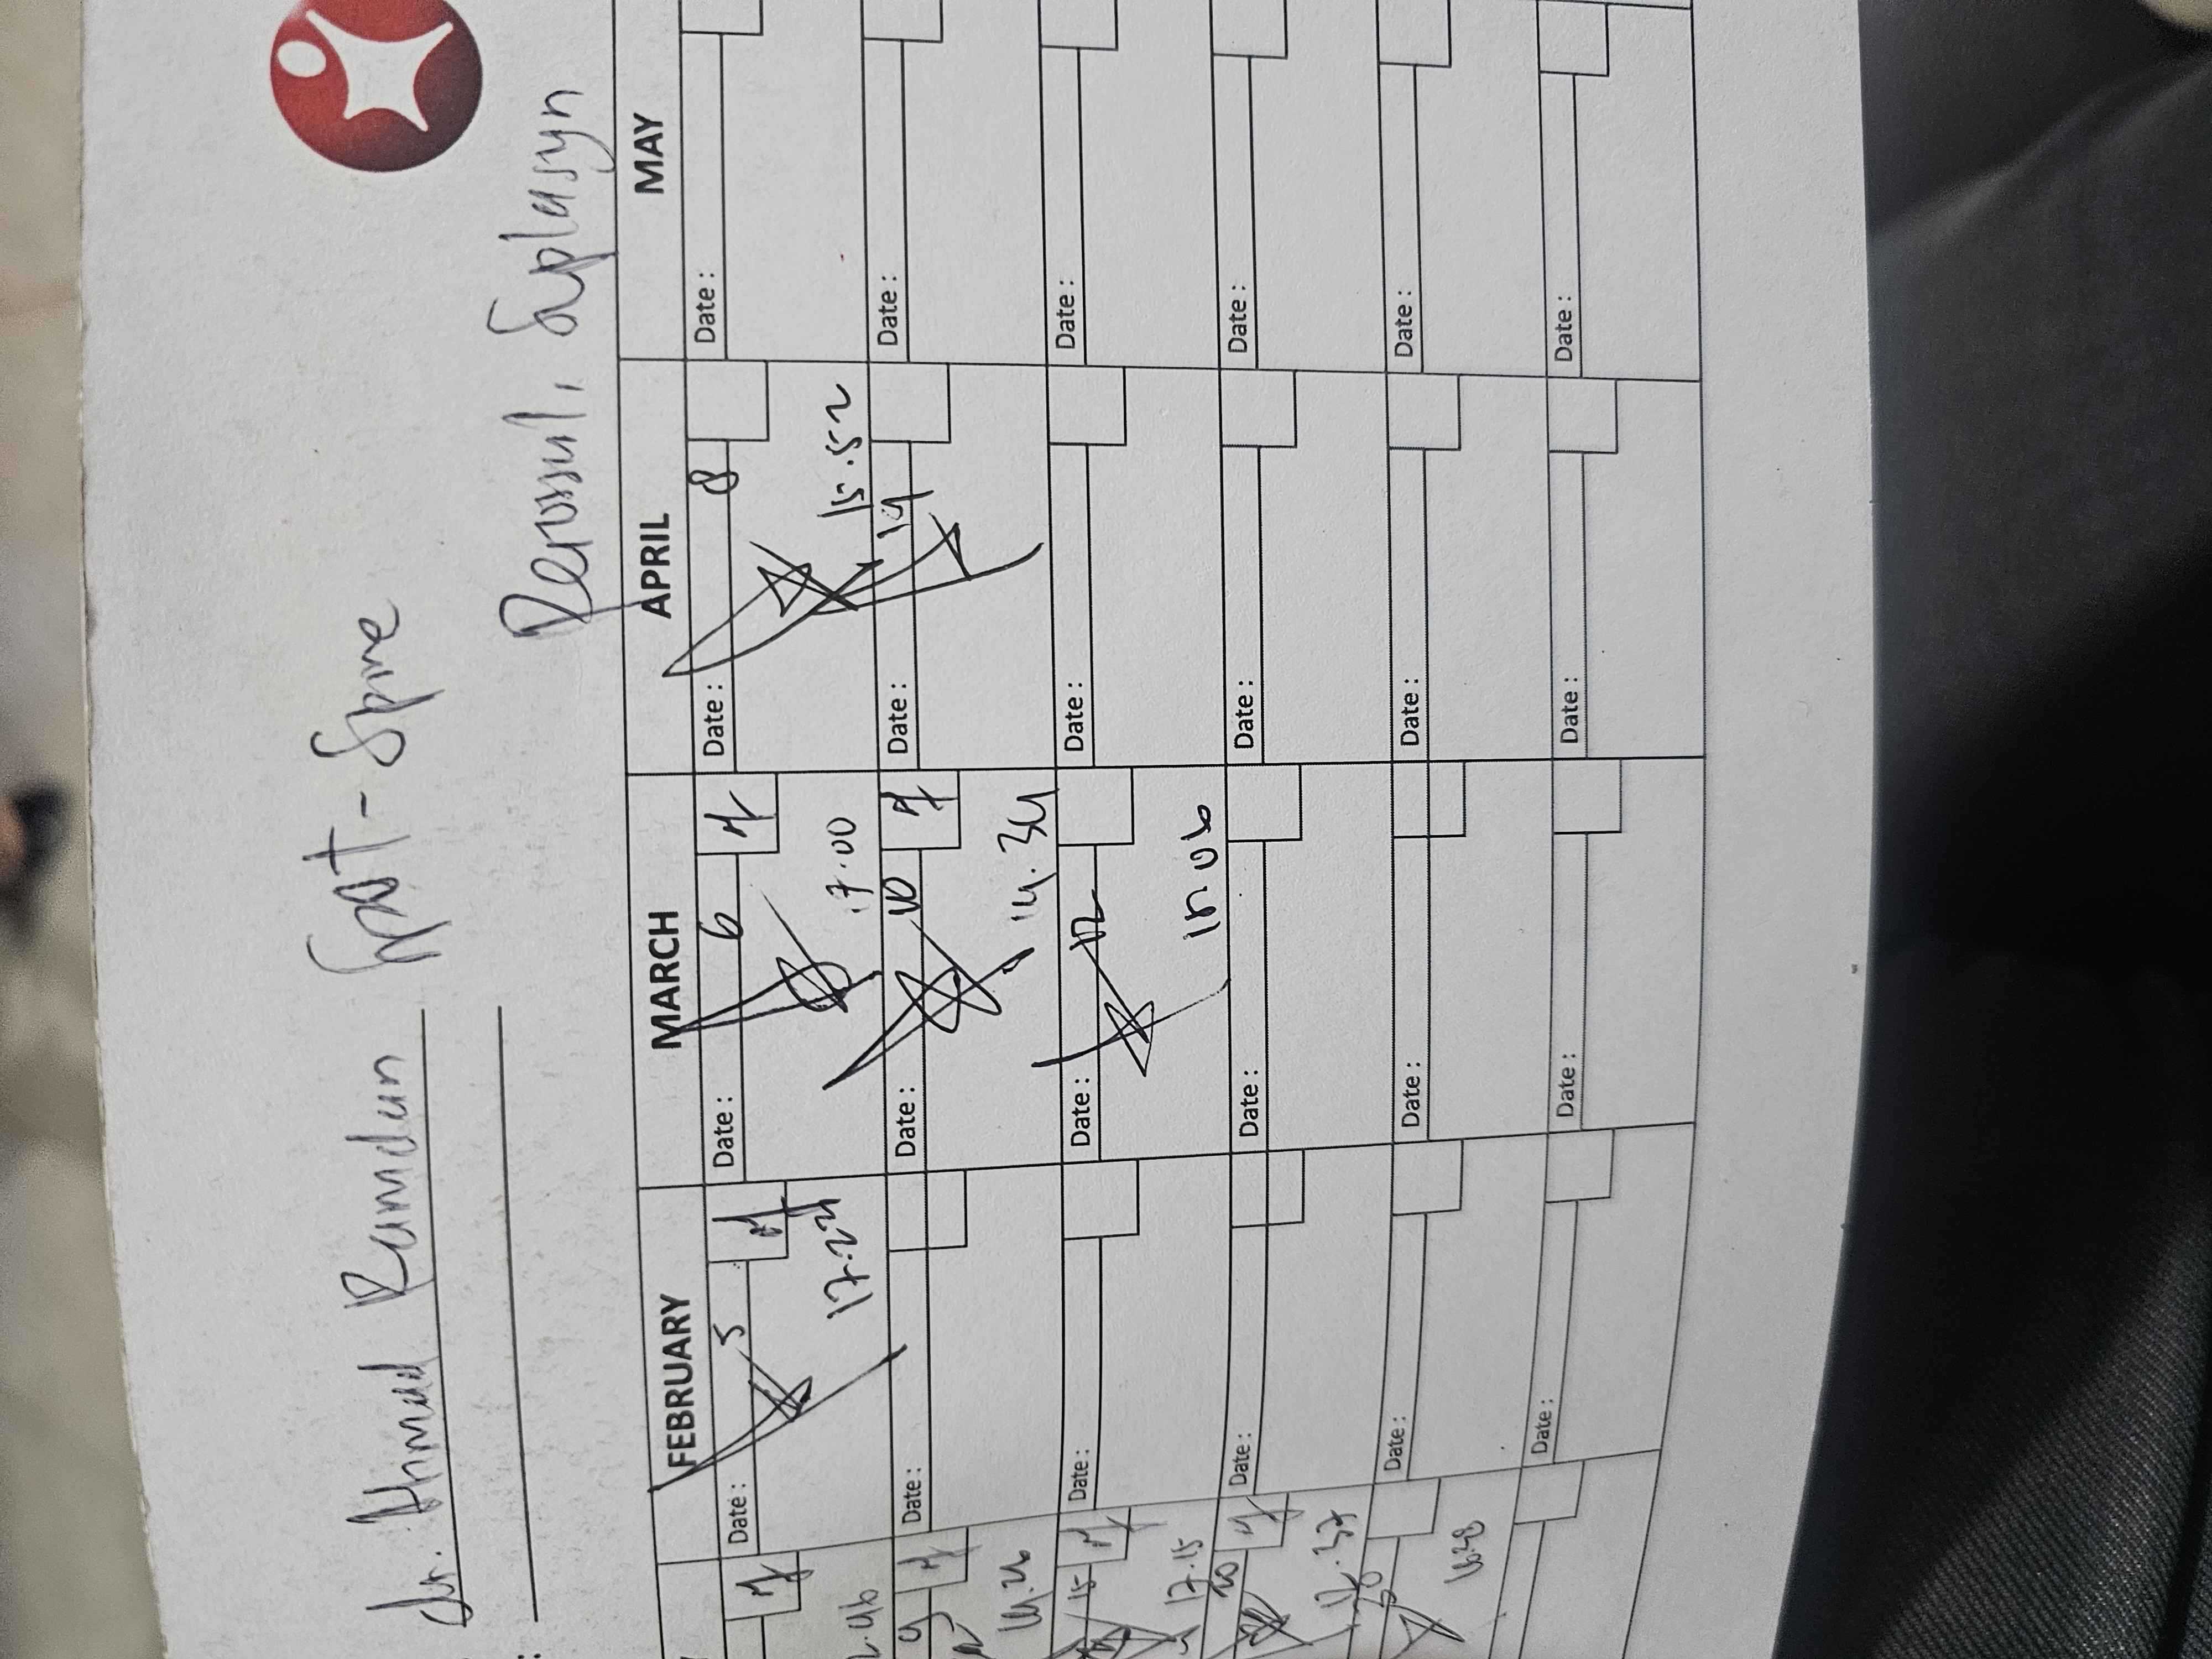 dr. Ahmad Ramdan Spot - Spine
: Derosul, Suplasyn
FEBRUARY MARCH APRIL MAY
Date : 5 Date : 6 Date : 8 Date :
17.24 17.00 15.52
Date : Date : 10 Date : 14 Date :
14.26 14.34
15 Date : Date : 12 Date : Date :
17.15 15.06
20 Date : Date : Date : Date :
Date : Date : Date : Date :
16.28
Date : Date : Date : Date :